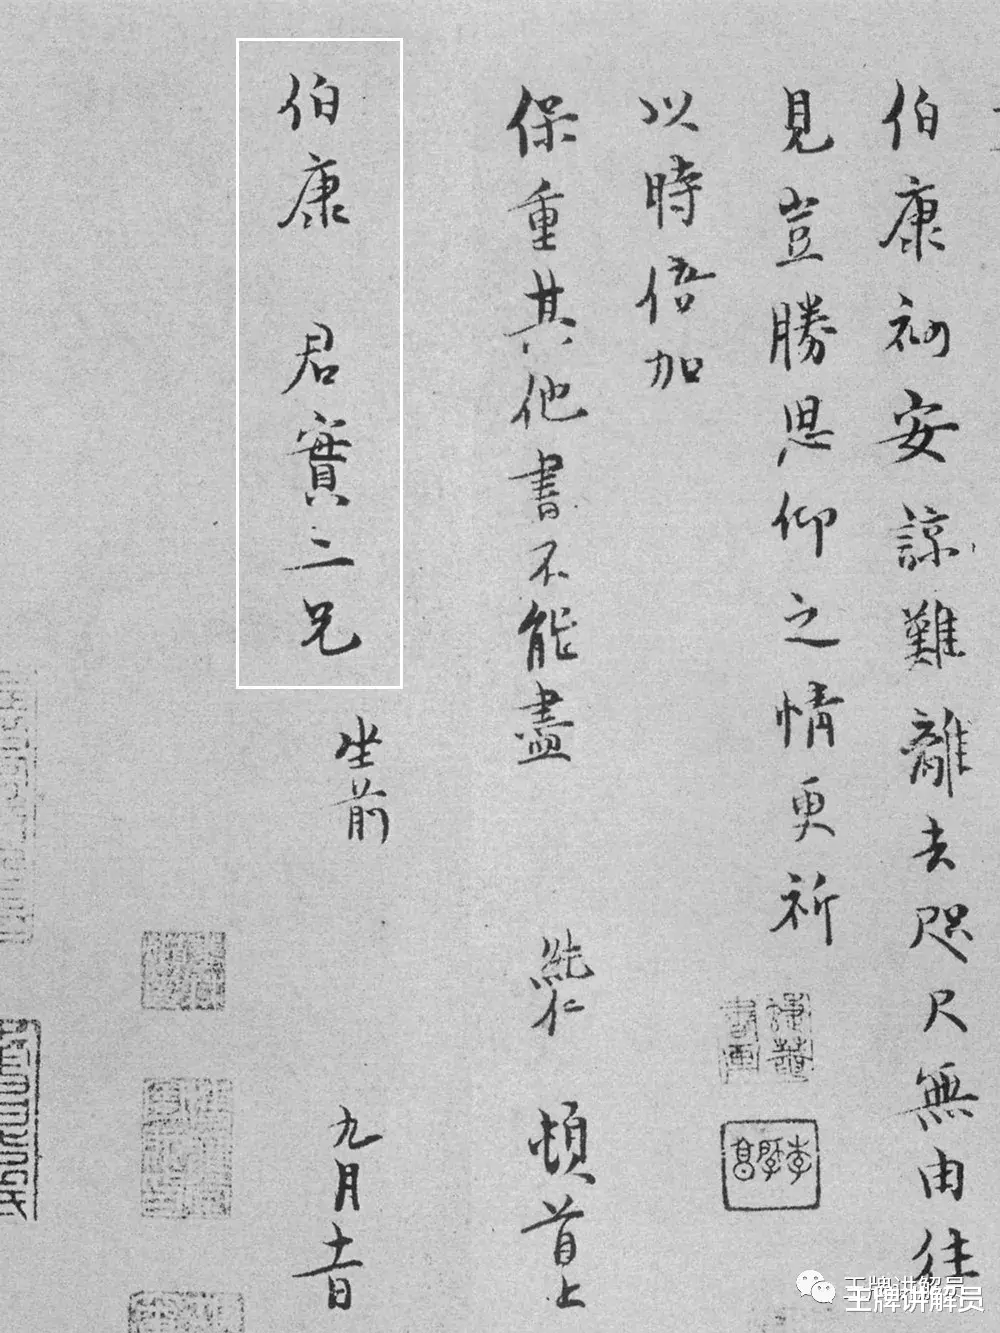 伯康初安諒難離去咫尺無由往
見豈勝思仰之情更祈
以時倍加
保重其他書不能盡 純仁 頓首上
伯康 君實二兄
坐前 九月十一日
王牌讲解员
王牌讲解员